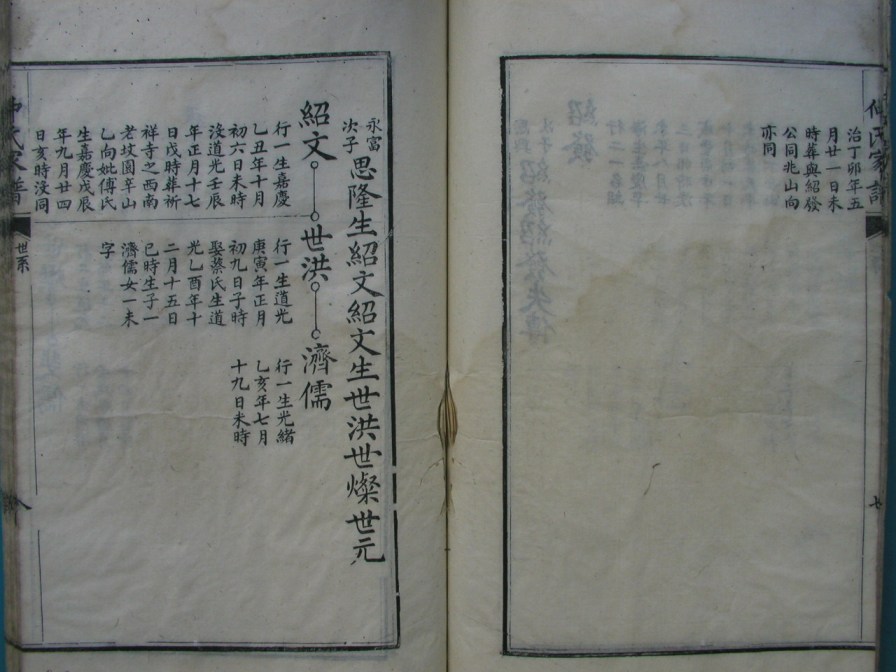 氏家譜
治丁卯年五
月廿一日未
時葬與紹發
公同兆山向
亦同
永富
次子
思隆生紹文紹文生世洪世燦世元
紹文
行一生嘉慶
乙丑年十月
初六日未時
没道光壬辰
年正月十七
日戌時葬祈
祥寺之西南
老坟圓辛山
乙向妣傅氏
生嘉慶戊辰
年九月廿四
日亥時没同
世洪
行一生道光
庚寅年正月
初九日子時
娶蔡氏生道
光乙酉年十
二月十五日
巳時生子一
濟儒女一未
字
濟儒
行一生光緒
乙亥年七月
十九日未時
氏家譜
世系
八